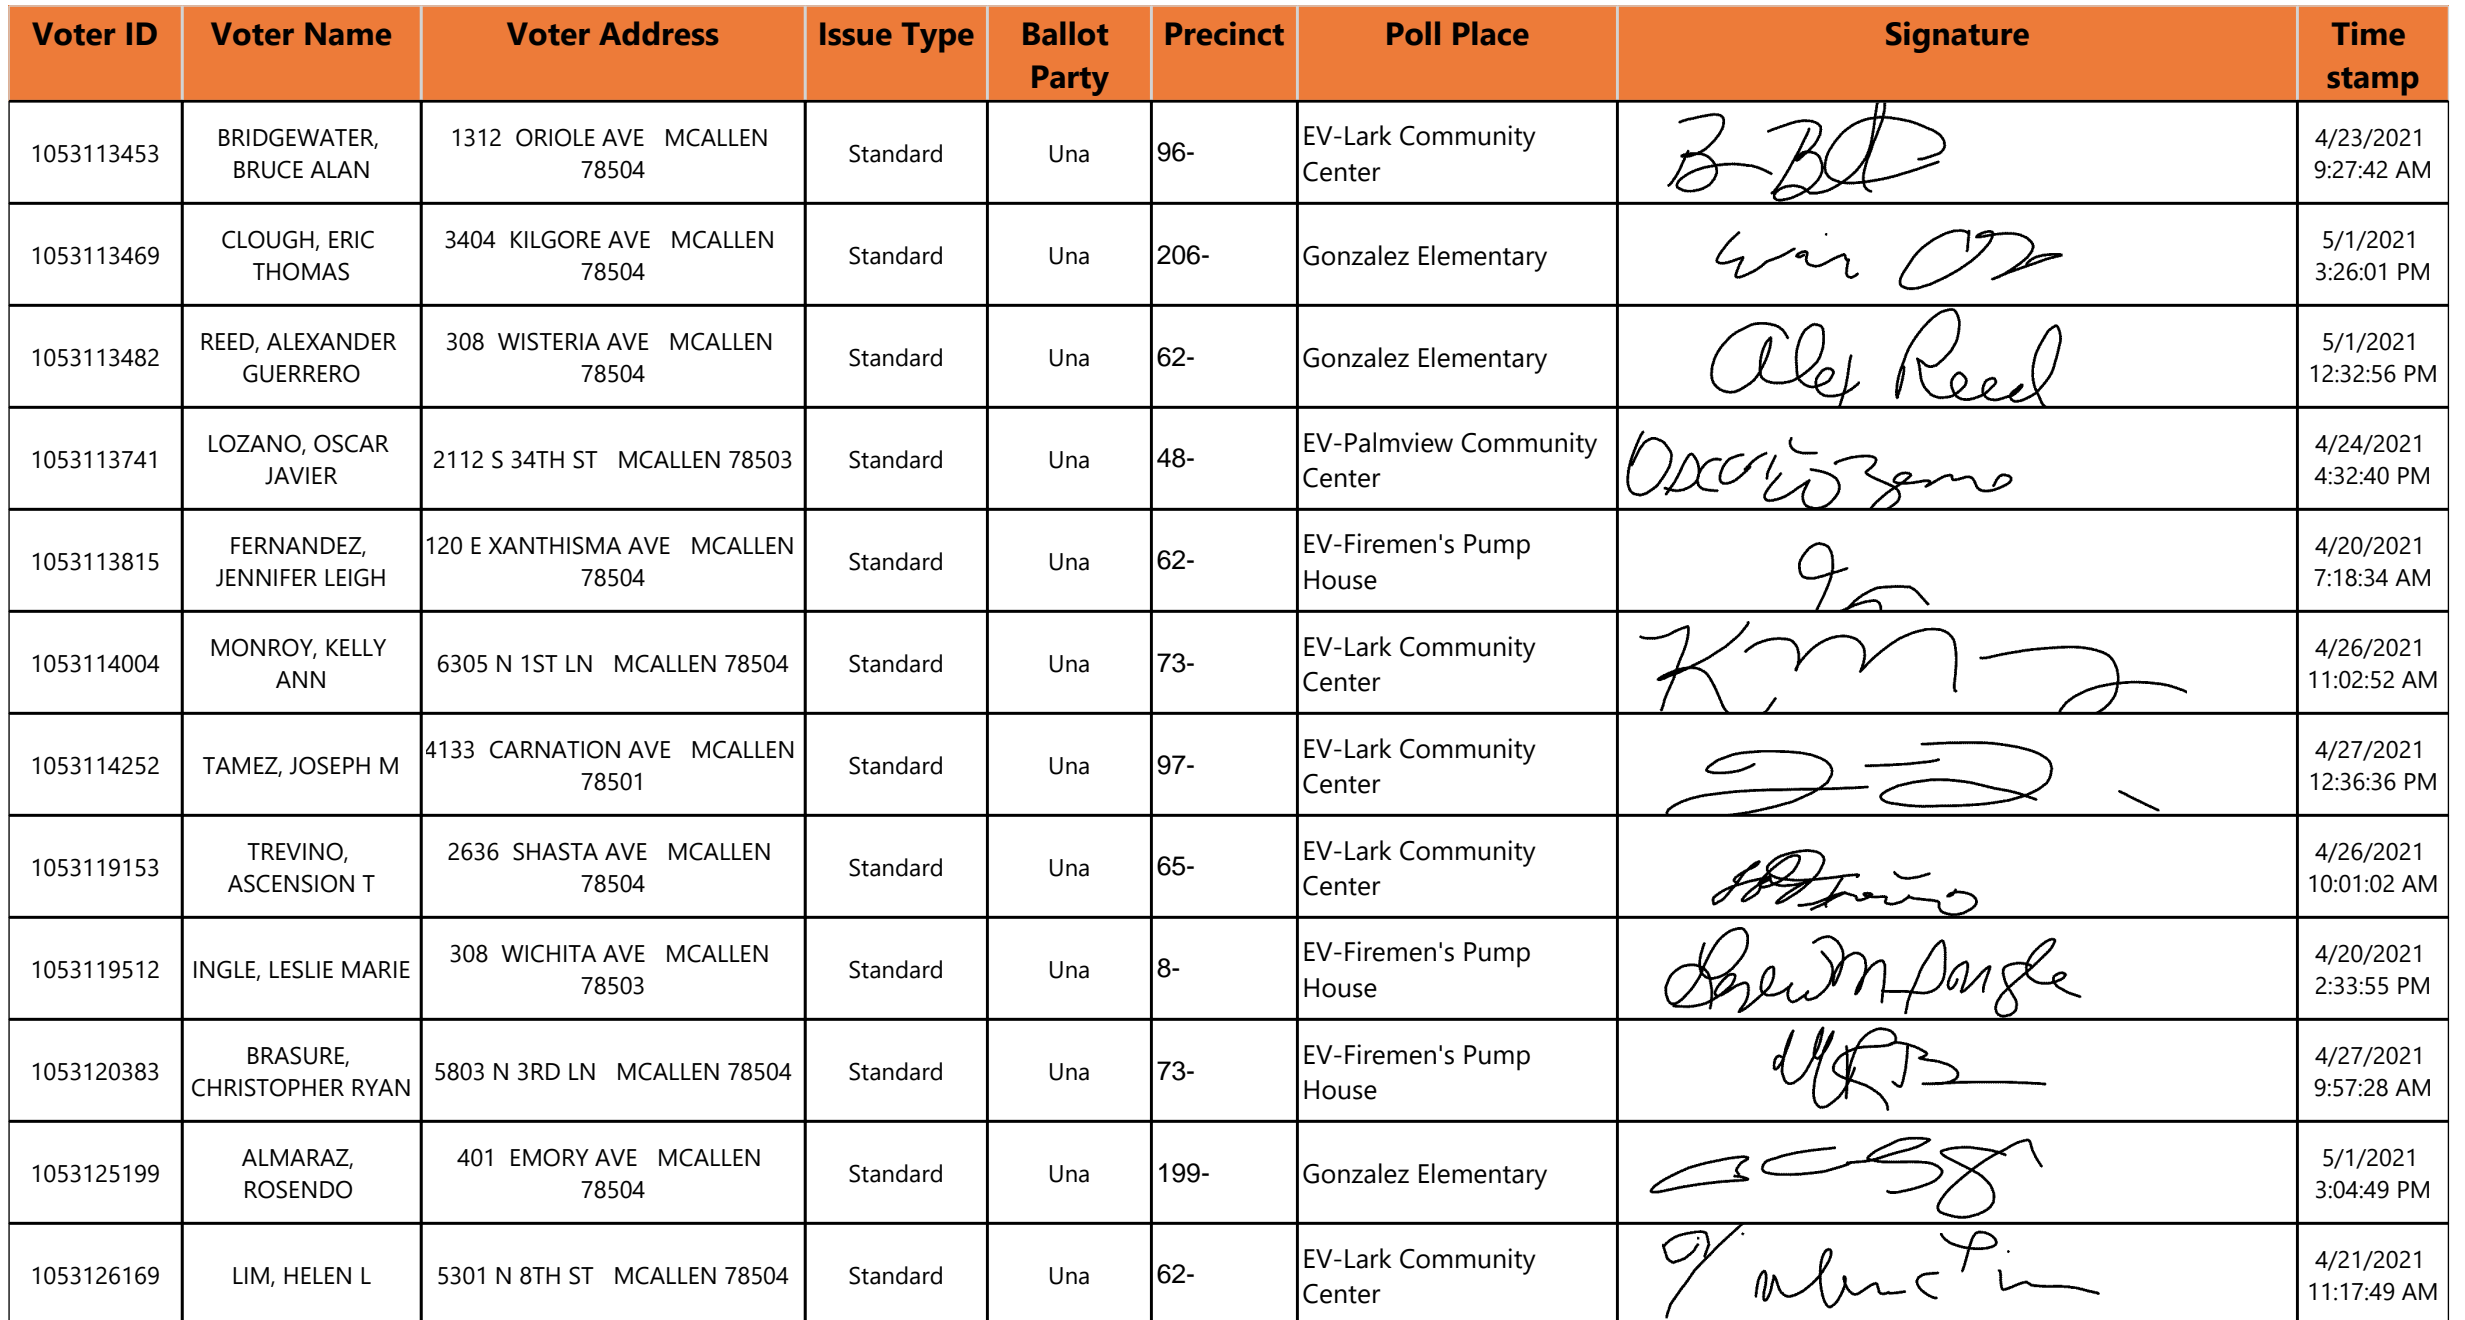 Voter ID Voter Name Voter Address Issue Type Ballot Party Precinct Poll Place Signature Time stamp
1053113453 BRIDGEWATER, BRUCE ALAN 1312 ORIOLE AVE MCALLEN 78504 Standard Una 96- EV-Lark Community Center 4/23/2021 9:27:42 AM
1053113469 CLOUGH, ERIC THOMAS 3404 KILGORE AVE MCALLEN 78504 Standard Una 206- Gonzalez Elementary 5/1/2021 3:26:01 PM
1053113482 REED, ALEXANDER GUERRERO 308 WISTERIA AVE MCALLEN 78504 Standard Una 62- Gonzalez Elementary Alex Reed 5/1/2021 12:32:56 PM
1053113741 LOZANO, OSCAR JAVIER 2112 S 34TH ST MCALLEN 78503 Standard Una 48- EV-Palmview Community Center 4/24/2021 4:32:40 PM
1053113815 FERNANDEZ, JENNIFER LEIGH 120 E XANTHISMA AVE MCALLEN 78504 Standard Una 62- EV-Firemen's Pump House 4/20/2021 7:18:34 AM
1053114004 MONROY, KELLY ANN 6305 N 1ST LN MCALLEN 78504 Standard Una 73- EV-Lark Community Center 4/26/2021 11:02:52 AM
1053114252 TAMEZ, JOSEPH M 4133 CARNATION AVE MCALLEN 78501 Standard Una 97- EV-Lark Community Center 4/27/2021 12:36:36 PM
1053119153 TREVINO, ASCENSION T 2636 SHASTA AVE MCALLEN 78504 Standard Una 65- EV-Lark Community Center 4/26/2021 10:01:02 AM
1053119512 INGLE, LESLIE MARIE 308 WICHITA AVE MCALLEN 78503 Standard Una 8- EV-Firemen's Pump House 4/20/2021 2:33:55 PM
1053120383 BRASURE, CHRISTOPHER RYAN 5803 N 3RD LN MCALLEN 78504 Standard Una 73- EV-Firemen's Pump House 4/27/2021 9:57:28 AM
1053125199 ALMARAZ, ROSENDO 401 EMORY AVE MCALLEN 78504 Standard Una 199- Gonzalez Elementary 5/1/2021 3:04:49 PM
1053126169 LIM, HELEN L 5301 N 8TH ST MCALLEN 78504 Standard Una 62- EV-Lark Community Center 4/21/2021 11:17:49 AM